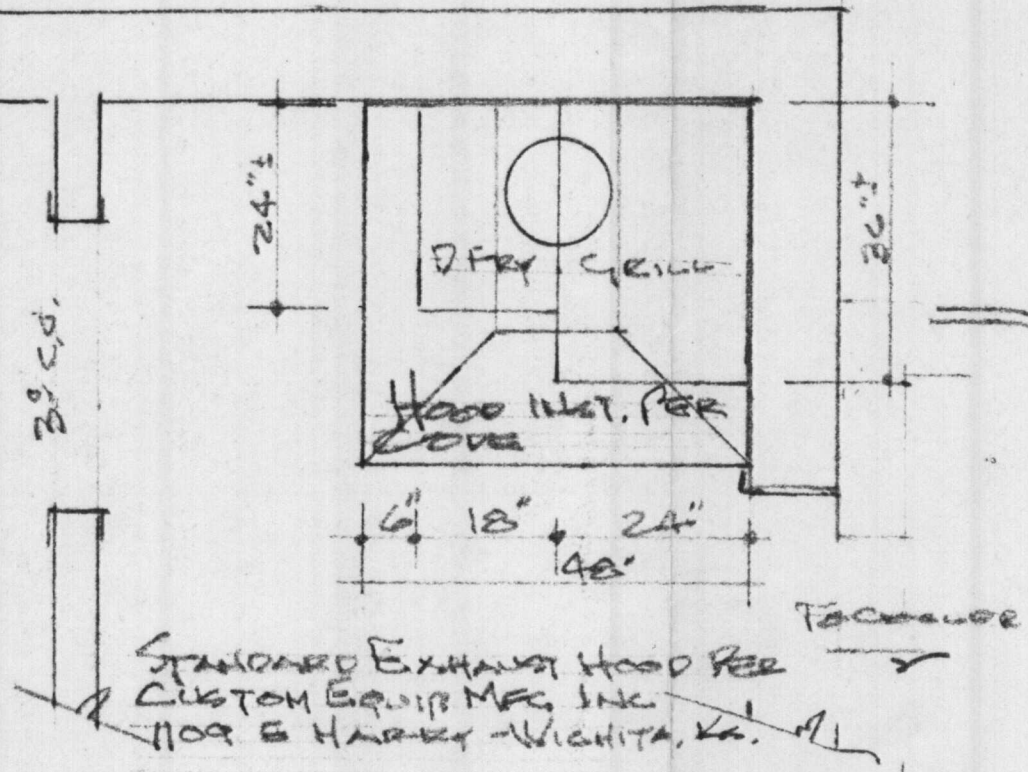 24"±
36"±
D FRY GRILL
3° C.O.
HOOD INST. PER
CODE
6" 18" 24"
48"
STANDARD EXHAUST HOOD PER
CUSTOM EQUIP MFG, INC
1109 E HARRY - WICHITA, KS.